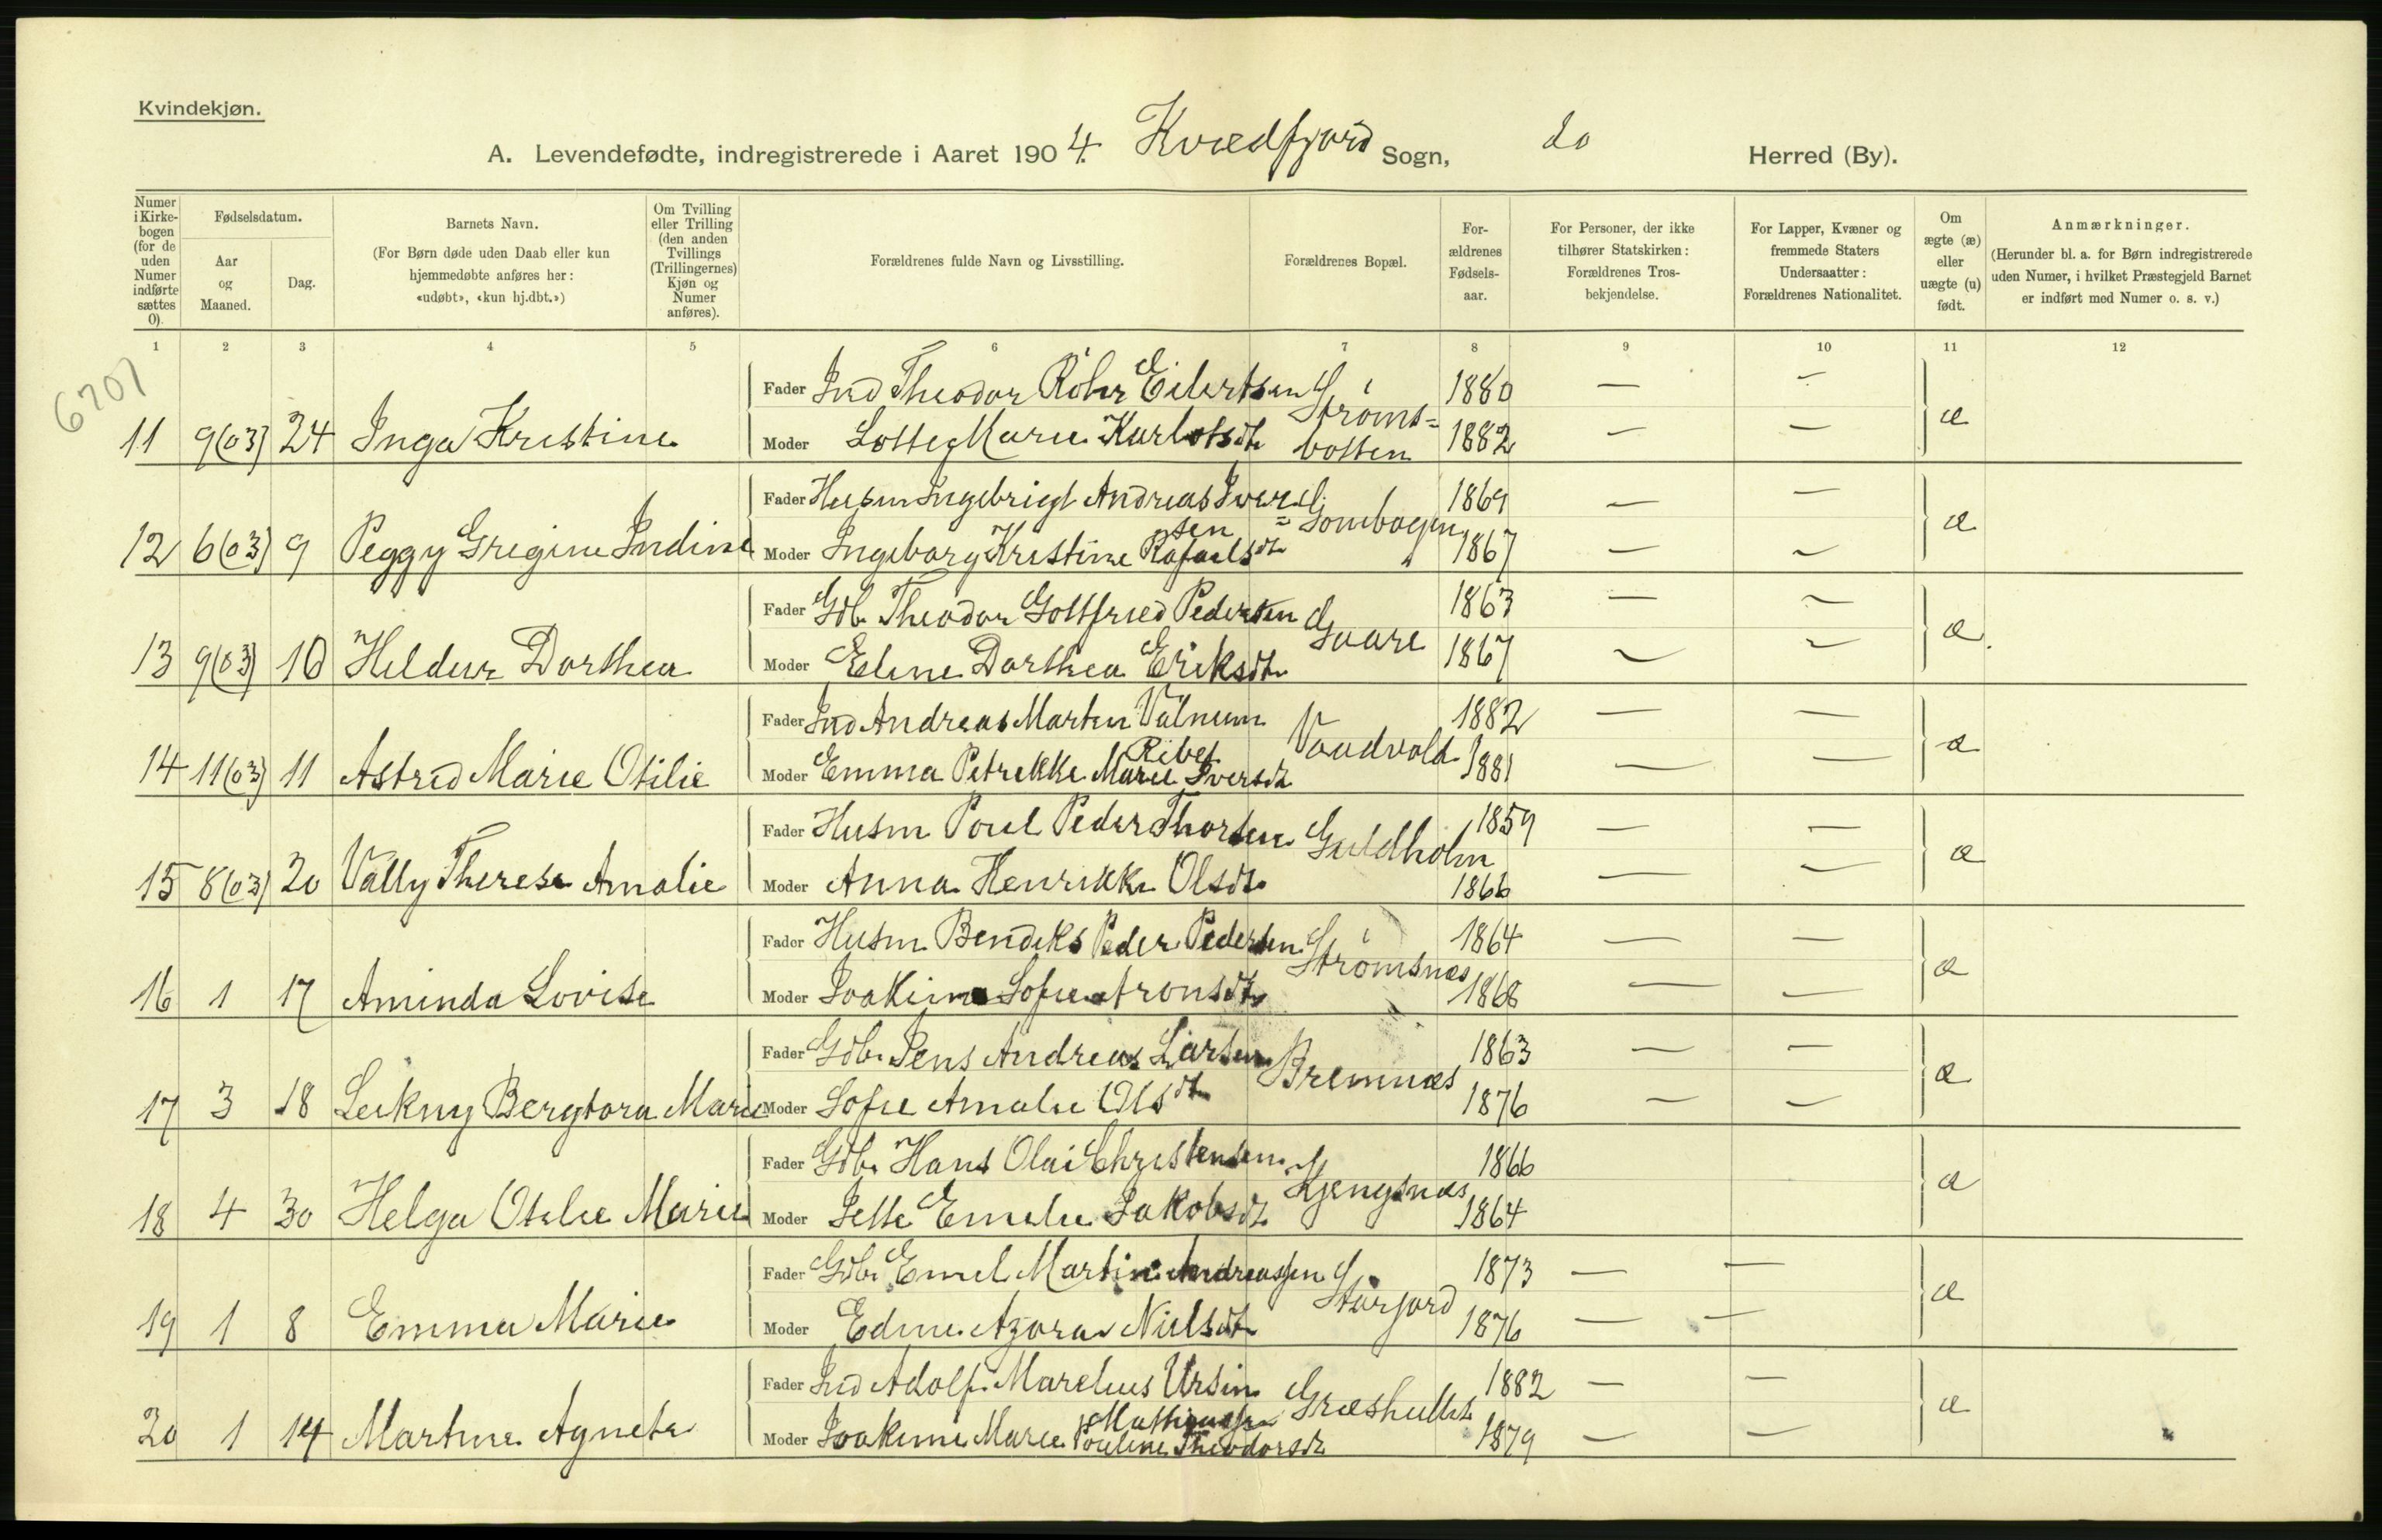 Kvindekjøn.
A. Levendefødte, indregistrerede i Aaret 1904. Kvædfjord Sogn, do Herred (By).
Numer i Kirkebogen (for de uden Numer indførte sættes 0).
Fødselsdatum.
Aar og Maaned.
Dag.
Barnets Navn.
(For Børn døde uden Daab eller kun hjemmedøbte anføres her: «udøbt», «kun hj.dbt.»)
Om Tvilling eller Trilling (den anden Tvillings (Trillingernes) Kjøn og Numer anføres).
Forældrenes fulde Navn og Livsstilling.
Forældrenes Bopæl.
Forældrenes Fødselsaar.
For Personer, der ikke tilhører Statskirken: Forældrenes Trosbekjendelse.
For Lapper, Kvæner og fremmede Staters Undersaatter: Forældrenes Nationalitet.
Om ægte (æ) eller uægte (u) født.
Anmærkninger.
(Herunder bl. a. for Børn indregistrerede uden Numer, i hvilket Præstegjeld Barnet er indført med Numer o. s. v.)
1 2 3 4 5 6 7 8 9 10 11 12
6701
Fader Ind Theodor Röhr Eilertsen Ströms= 1880 — —
11 9(03) 24 Inga Kristine Moder Lotte Marie Karlotsdt botten 1882 — — æ
Fader Husm Ingebrigt Andreas Iver= 1869 — —
sen Gombogen
12 6(03) 9 Peggy Gregine Indine Moder Ingeborg Kristine Rafaelsdt 1867 — — æ
Fader Gdb. Theodor Gottfried Pedersen Gaare 1863 — —
13 9(03) 10 Heldur Dorthea Moder Eline Dorthea Eriksdt 1867 — — æ
Fader Ind Andreas Martin Valnum Vaadvold 1882 — —
Ribet
14 11(03) 11 Astrid Marie Otilie Moder Emma Petrikke Marie Iversdt 1881 — — æ
Fader Husm Poul Peder Thorsen Guldholm 1859 — —
15 8(03) 20 Vally Therese Amalie Moder Anna Henrikke Olsdt 1866 — — æ
Fader Husm Bendiks Peder Pedersen Strömsnæs 1864 — —
16 1 17 Aminda Lovise Moder Joakima Sofie Aronsdt 1868 — — æ
Fader Gdb. Jens Andreas Larsen Bremnæs 1863 — —
17 3 18 Leikny Bergtora Marie Moder Sofie Amalie Olsdt 1876 — — æ
Fader Gdb. Hans Olai Christensen Kjengsnæs 1866
18 4 30 Helga Otelie Marie Moder Jette Emelie Jakobsdt 1864 æ
Fader Gdb. Emil Martin Andreassen Storjord 1873 — —
19 1 8 Emma Marie Moder Edine Azora Nielsdt 1876 — — æ
Fader Ind Adolf Marelius Ursin Græsholtet 1882 — —
20 1 14 Martine Agnete Moder Joakime Marie Pouline Theodorsdt 1879 — — æ